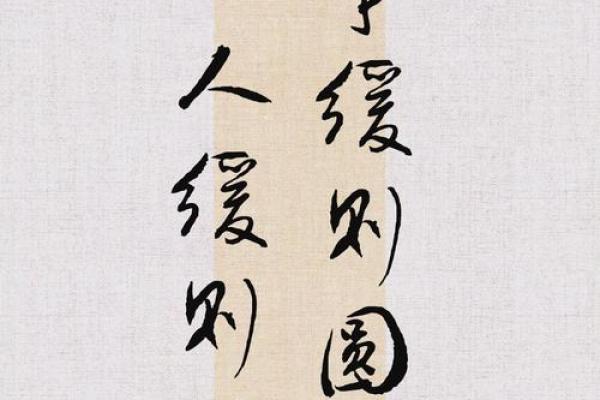 缓则圆
人缓则